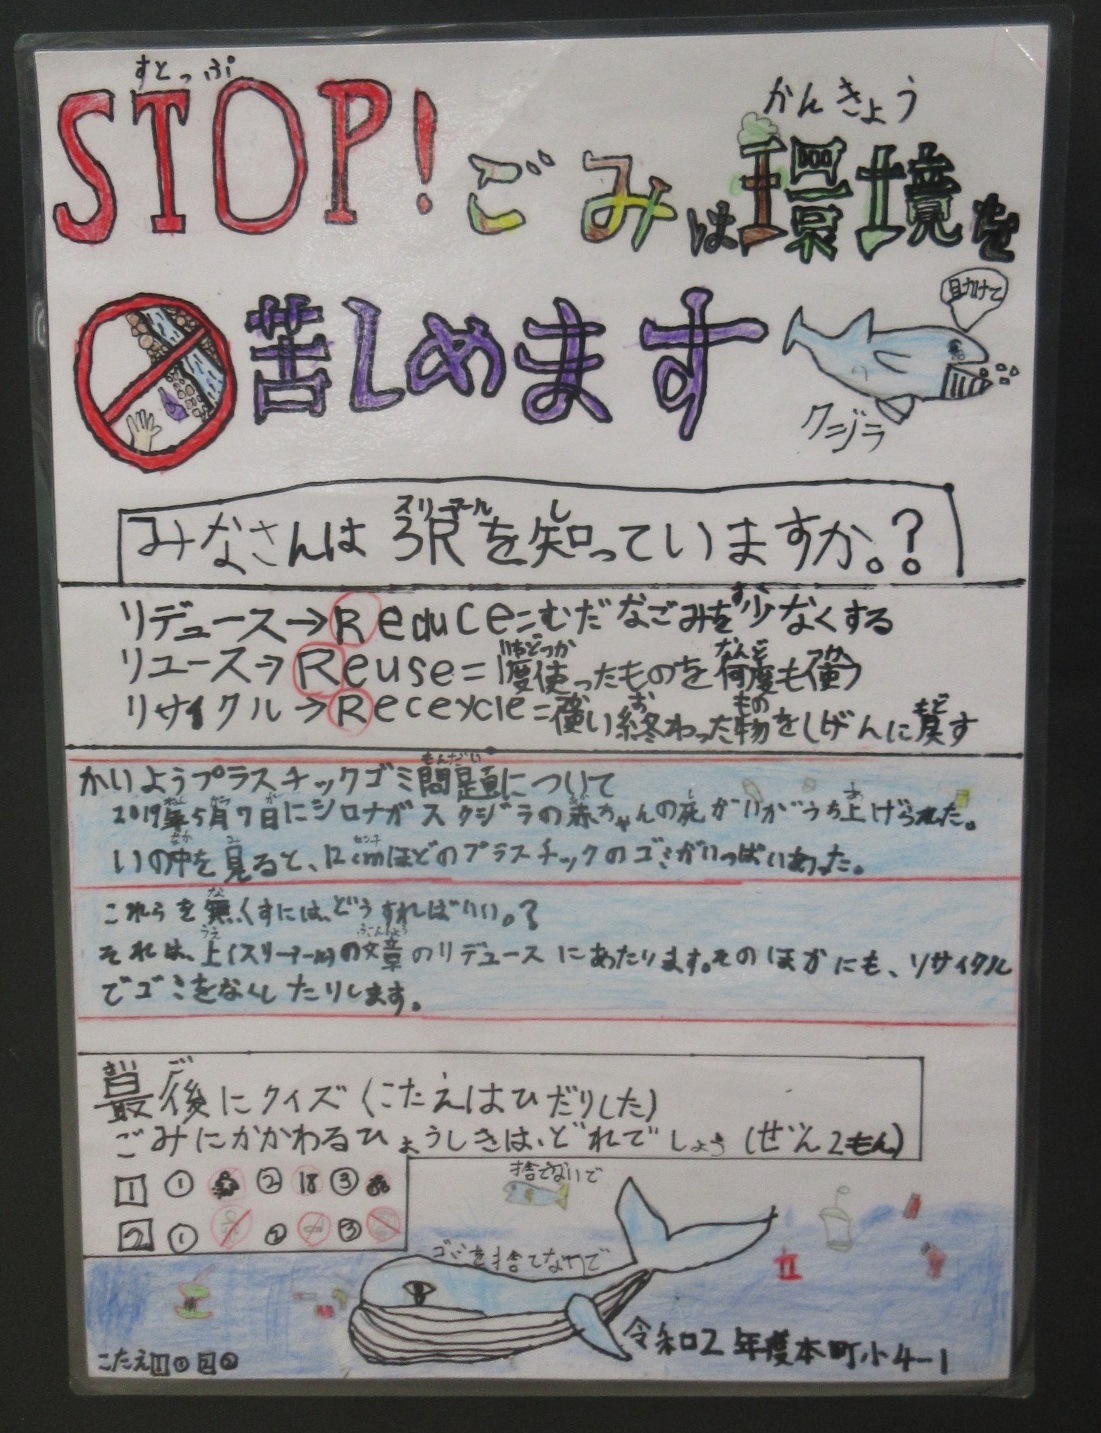 すとっぷ
STOP! ごみは環境を
かんきょう
苦しめます
助けて
クジラ
みなさんは3Rを知っていますか。?
スリーアール し
リデュース→Reduce=むだなごみを少なくする
すく
リユース→Reuse=1度使ったものを何度も使う
いちどつか なんど つか
リサイクル→Rececycle=使い終わった物をしげんに戻す
お もの もど
かいようプラスチックゴミ問題について
もんだい
2019年5月7日にシロナガスクジラの赤ちゃんの死がいがうち上げられた。
いの中を見ると、12cmほどのプラスチックのゴミがいっぱいあった。
これらを無くすには、どうすればいい。?
それは、上(スリーアール)の文章のリデュースにあたります。そのほかにも、リサイクル
でゴミをなくしたりします。
最後にクイズ(こたえはひだりした)
ごみにかかわるひょうしきは、どれでしょう(ぜん2もん)
1 ① ② ③
2 ① ② ③
捨てないで
ゴミを捨てないで
令和2年度本町小4-1
こたえ1